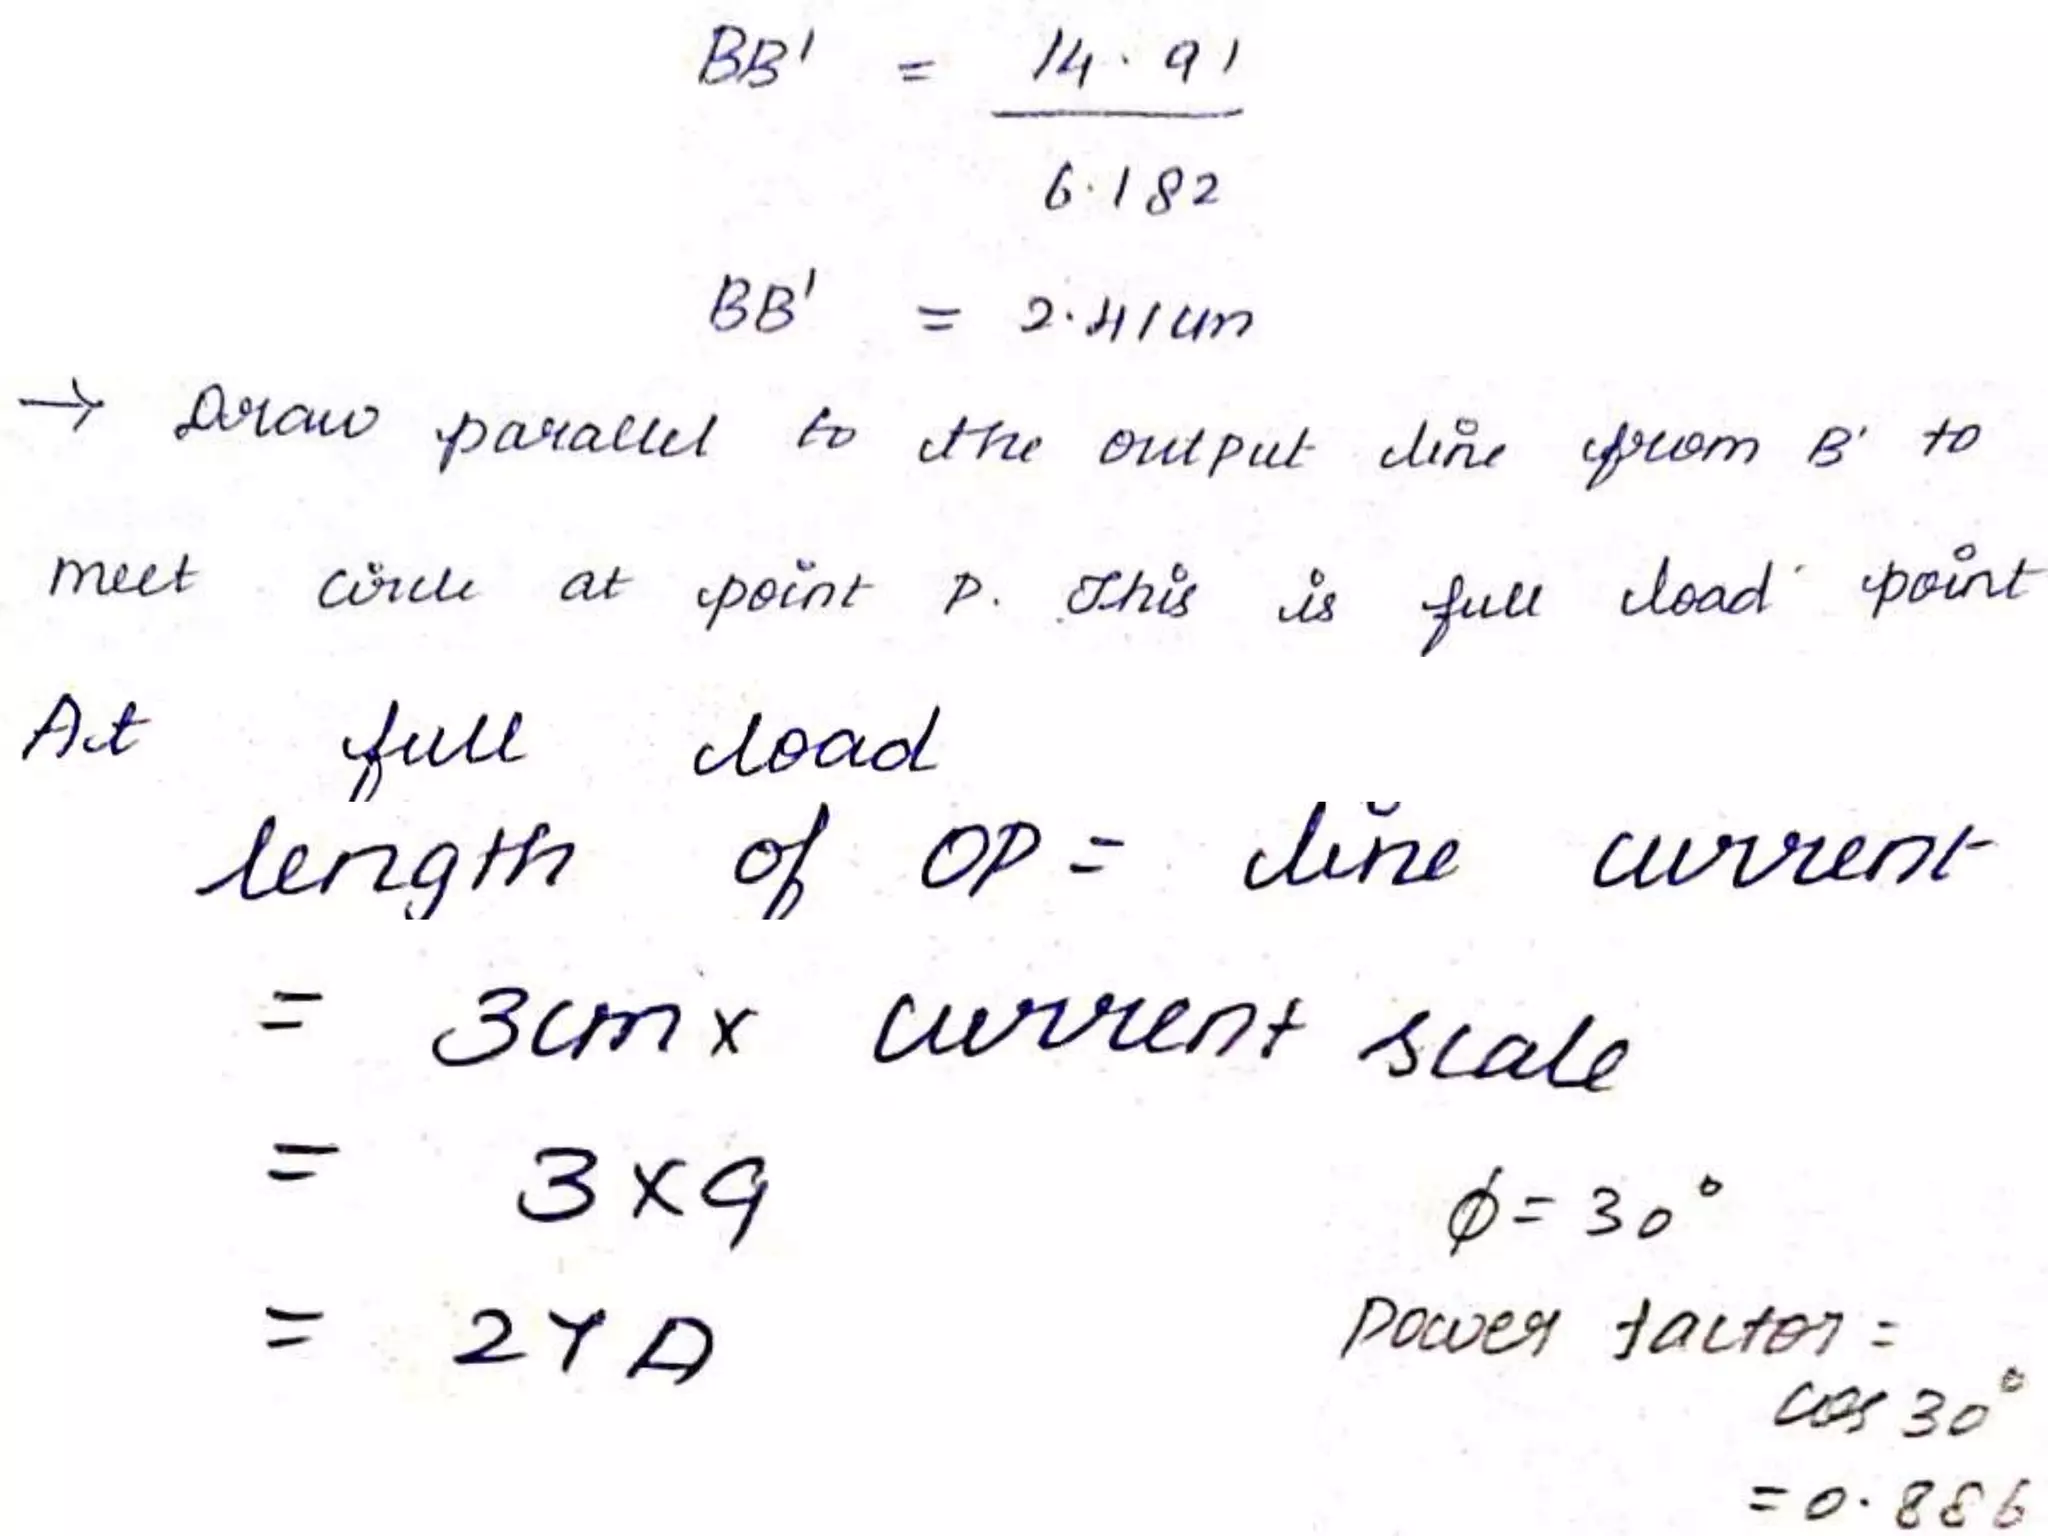 BB' = 14.91
6.182
BB' = 2.41cm
→ Draw parallel to the output line from B' to
meet circle at point P. This is full load point
At full load
length of OP = line current
= 3cm x current scale
= 3x9
= 27 A
φ = 30°
Power factor =
cos 30°
= 0.886